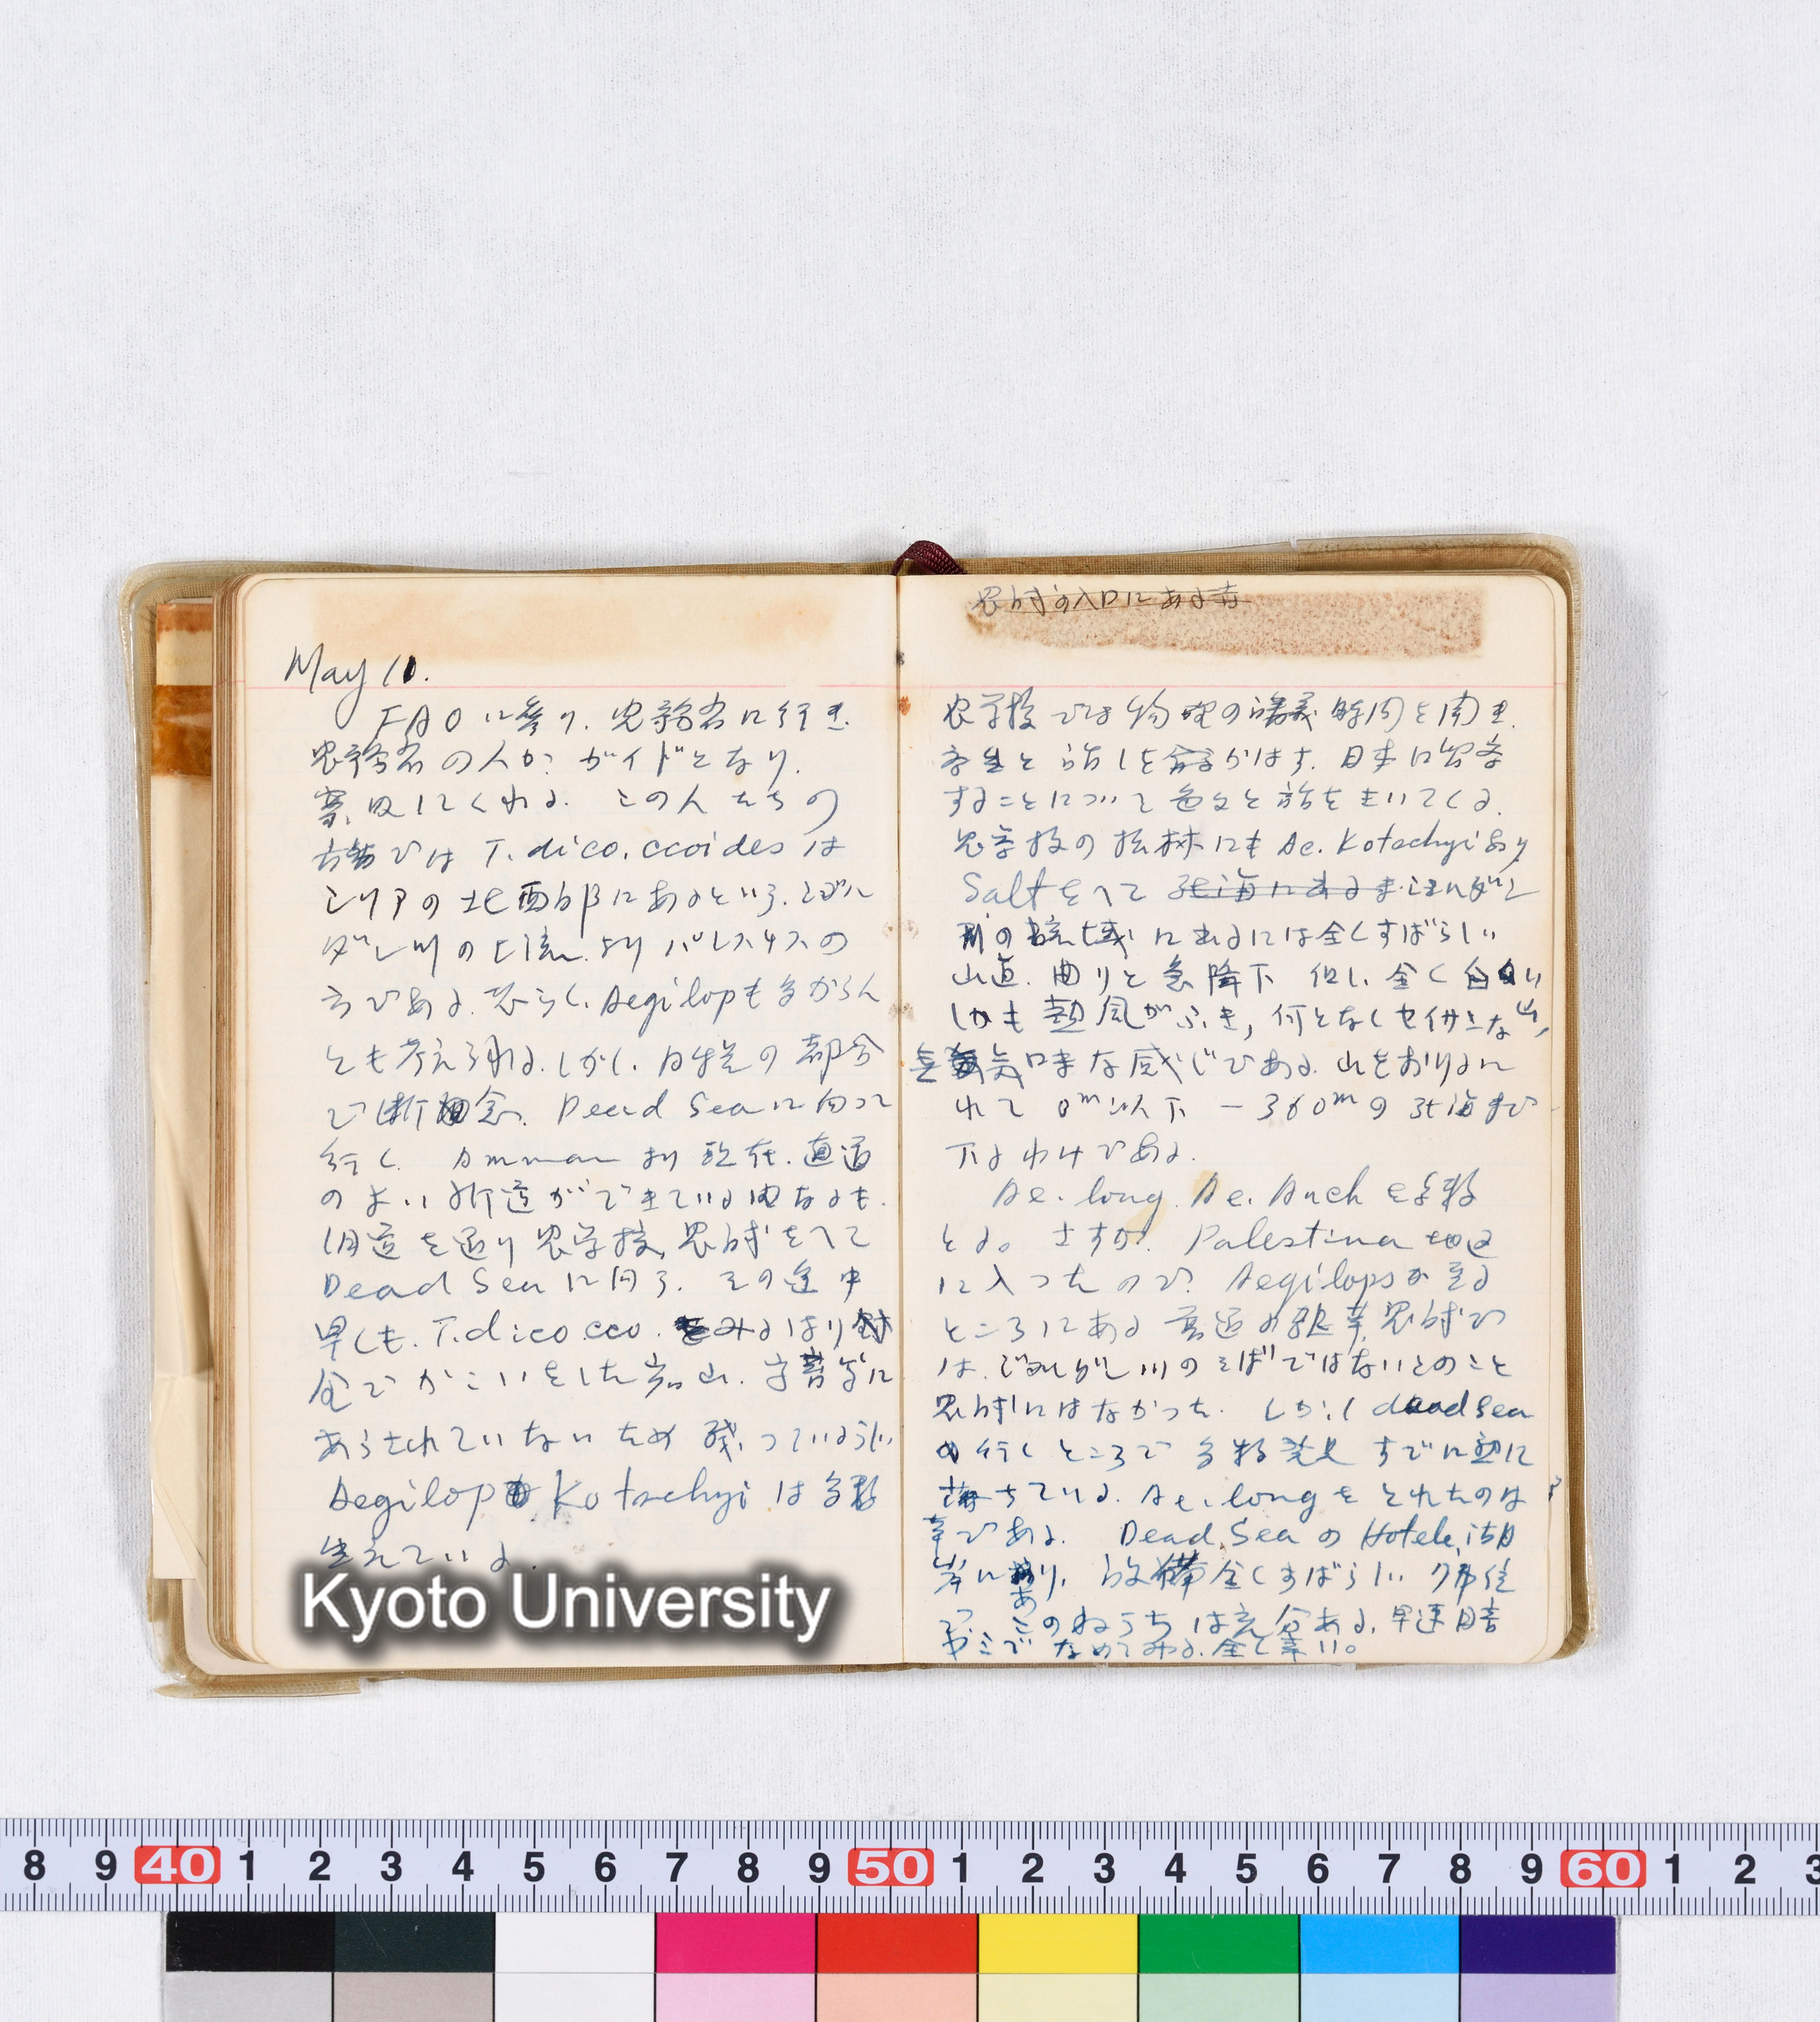 May 10.
FAOに参り、農務省に行き、
農務省の人がガイドとなり、
案内してくれる。この人たちの
話では T. dico.ccoides は
シリアの北西部にあるという。ヨル
ダン川の上流よりパレスチナの
方である。恐らく、Aegilopも多からん
とも考えられる。しかし、日程の都合
で断念。Dead Seaに向って
行く。Ammanより現在、直通
のよい新道ができている由なるも、
旧道を通り農学校、農試をへて
Dead Seaに向う。その途中
早くも、T.dico.cco. をみるはり
金でかこいをした岩山、
あらされていないため残っているらしい
Aegilop Kotschyi は多数
生えている。
Kyoto University
農試の入口にある
農学校では物理の講義時間を聞き、
学生と話しを かはす。日本に留学
することについて色々と話をきいてくる。
農学校の 林にも Ae. Kotschyiあり
Saltをへて 死海にある ヨルダン
川の 域に出るには全くすばらしい
山道、曲りと急降下 但し、全く白い山、
しかも熱風がふき、何となく な
無気味な感じである。山をおりるに
れて 0m以下 -360mの死海まで
下るわけである。
Ae. long. Ae. Auch を多数
とる。さすが、Palestina地区
に入ったので Aegilopsが至る
ところにある 農試で
は、ヨルダン川のそばではないとのこと
農試にはなかった。しかし dead sea
の行くところで多数発見 すでに熟に
落ちている。Ae. longをとれたのは
幸である。 Dead Sea の Hotel、湖
岸にあり、設備全くすばらしい
このねうちは充分ある。早速
なめてみる。全く辛い。
8 9 40 1 2 3 4 5 6 7 8 9 50 1 2 3 4 5 6 7 8 9 60 1 2 3